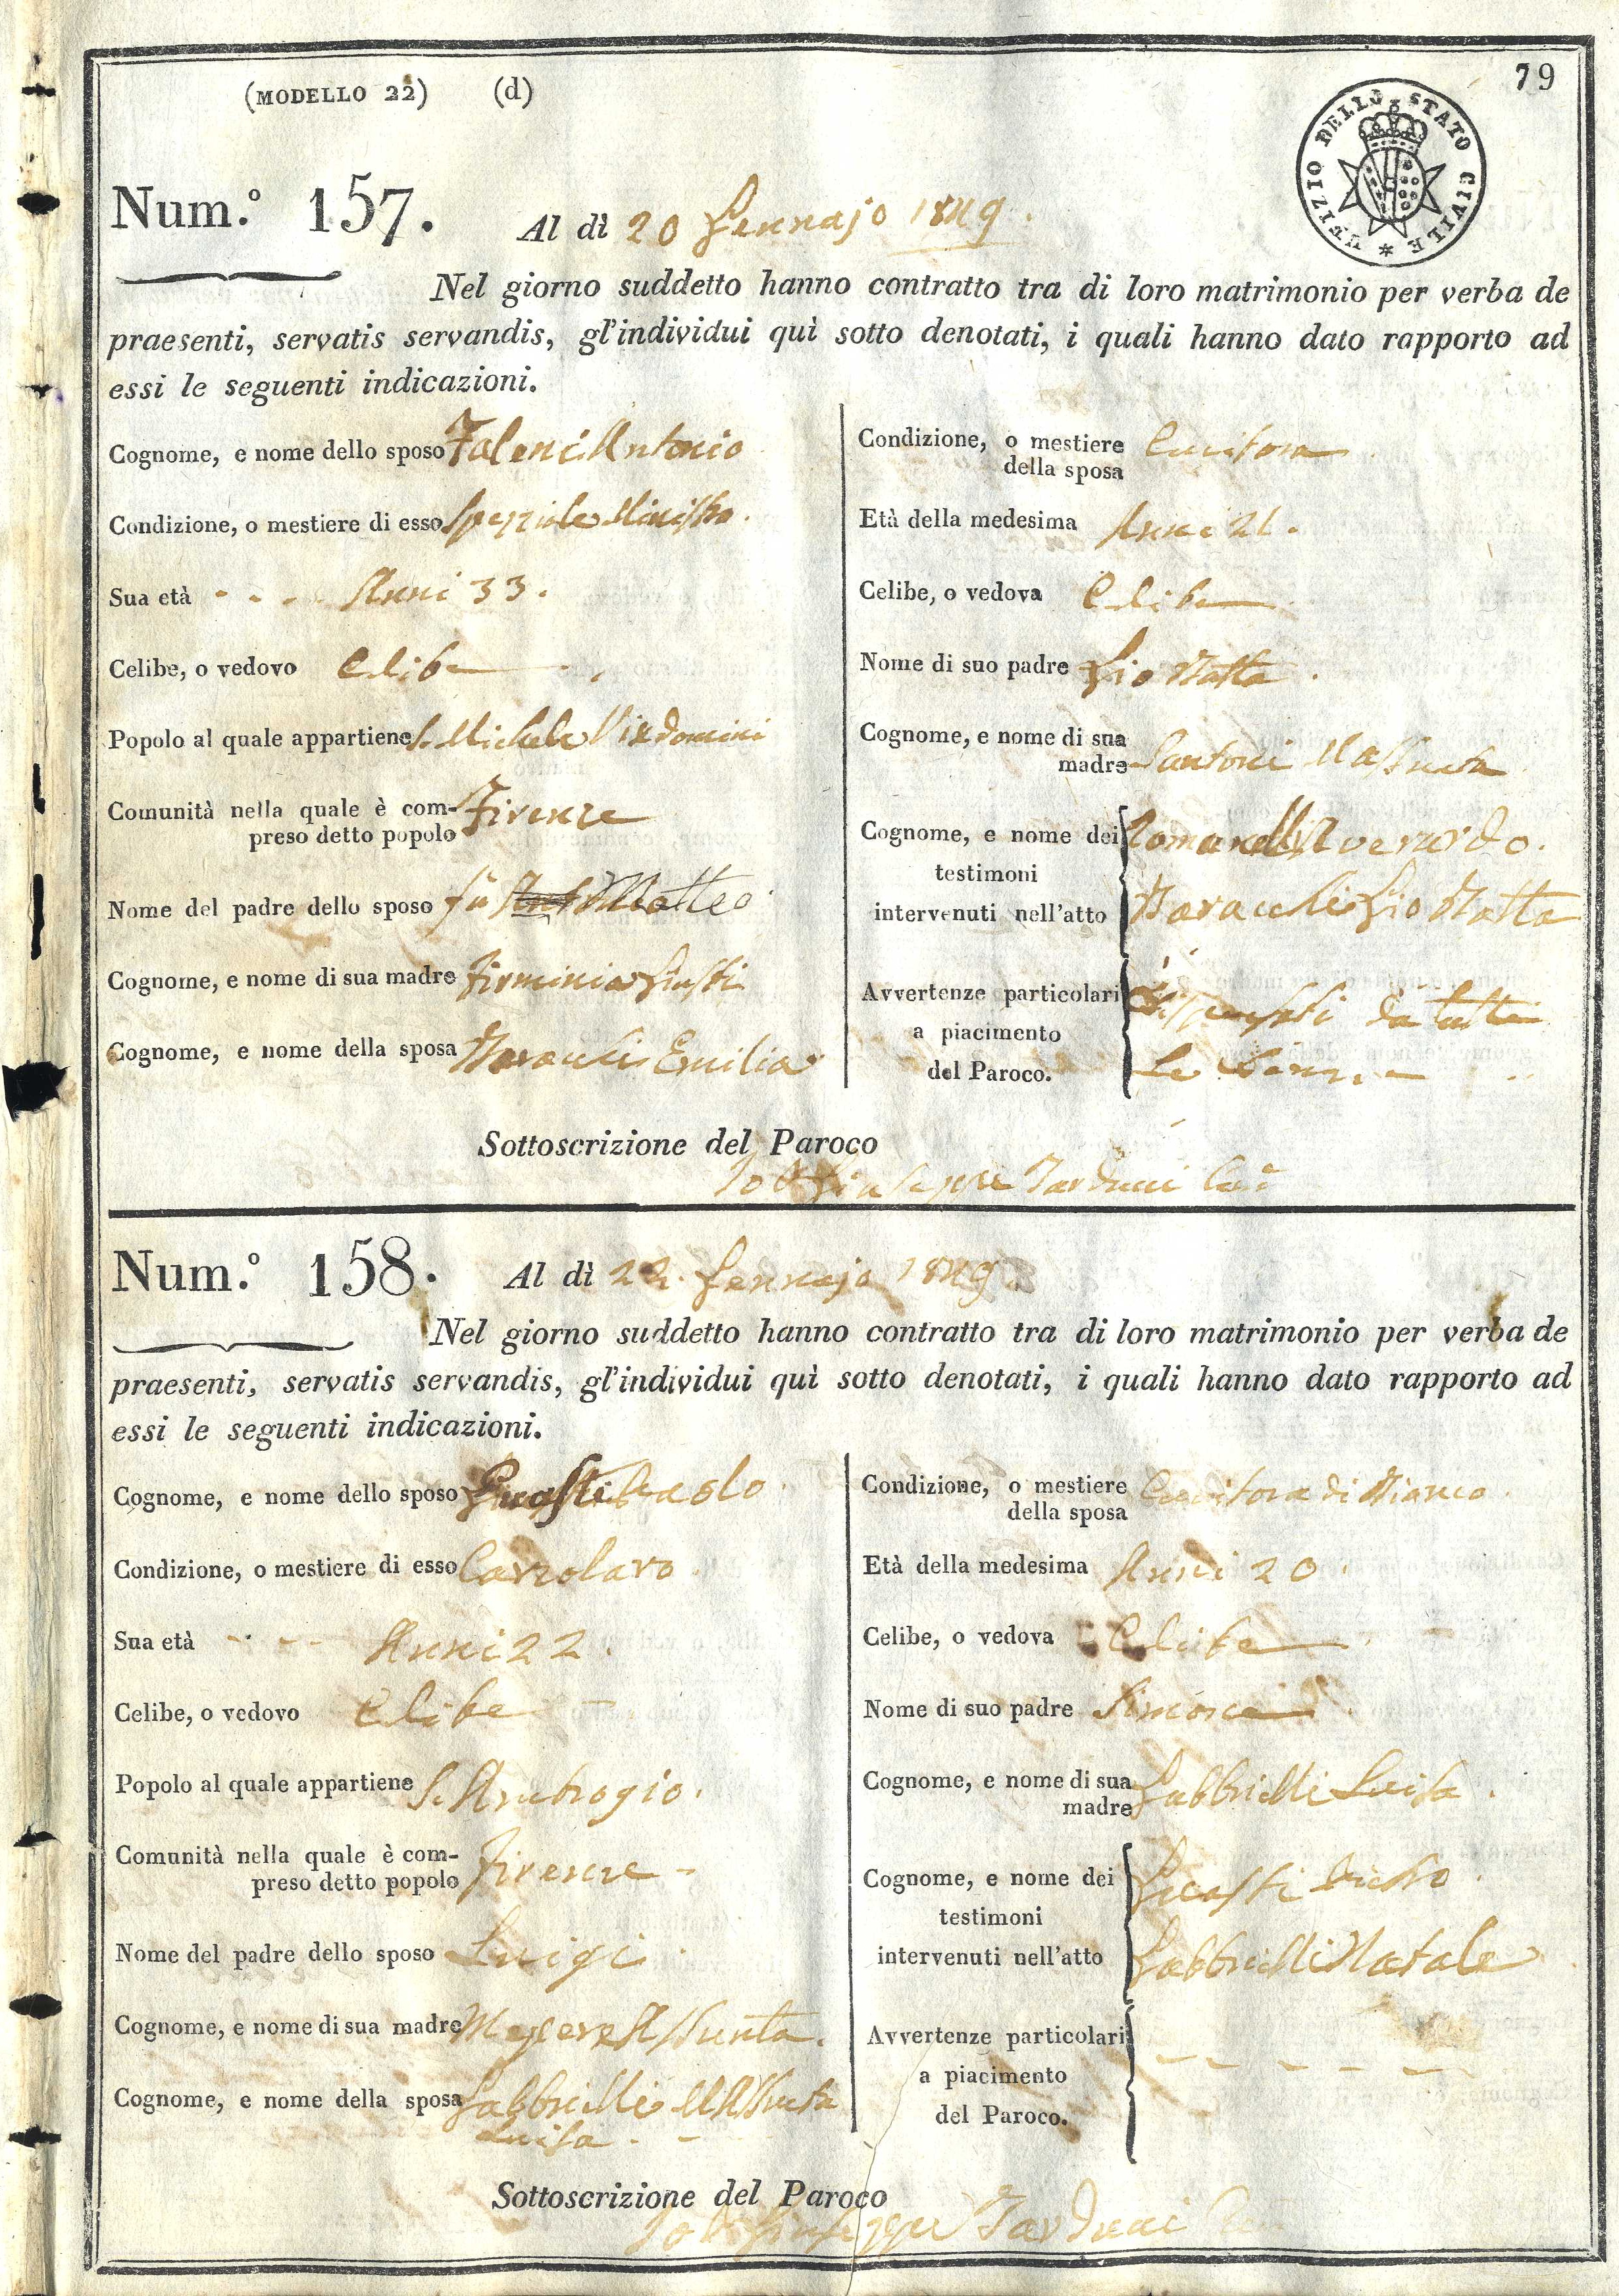 79
(MODELLO 22) (d)
UFIZIO DELLO STATO CIVILE
Num.° 157. Al dì 20 Gennajo 1849.
Nel giorno suddetto hanno contratto tra di loro matrimonio per verba de
praesenti, servatis servandis, gl'individui quì sotto denotati, i quali hanno dato rapporto ad
essi le seguenti indicazioni.
Cognome, e nome dello sposo Faleni Antonio
Condizione, o mestiere di esso Speziale Ministro.
Sua età - - - - Anni 33.
Celibe, o vedovo Celibe
Popolo al quale appartiene S. Michele Visdomini
Comunità nella quale è com-
preso detto popolo Firenze
Nome del padre dello sposo fù Matteo
Cognome, e nome di sua madre Firminia Giusti
Cognome, e nome della sposa Emilia
Condizione, o mestiere
della sposa Cucitora
Età della medesima Anni 21.
Celibe, o vedova Celibe
Nome di suo padre Gio Batta.
Cognome, e nome di sua
madre Santoni Massunta
Cognome, e nome dei Romanelli Averardo.
testimoni
intervenuti nell'atto Gio Batta
Avvertenze particolari Dispensati da tutte
a piacimento
del Paroco. Le
Sottoscrizione del Paroco
Io Giuseppe Tarduci
Num.° 158. Al dì 22. Gennajo 1849.
Nel giorno suddetto hanno contratto tra di loro matrimonio per verba de
praesenti, servatis servandis, gl'individui quì sotto denotati, i quali hanno dato rapporto ad
essi le seguenti indicazioni.
Cognome, e nome dello sposo Guasti Paolo
Condizione, o mestiere di esso Calzolaro
Sua età - - - Anni 22.
Celibe, o vedovo Celibe
Popolo al quale appartiene S. Ambrogio.
Comunità nella quale è com-
preso detto popolo Firenze -
Nome del padre dello sposo Luigi.
Cognome, e nome di sua madre Assunta.
Cognome, e nome della sposa Gabbrielli MAssunta
Luisa. -
Condizione, o mestiere
della sposa Cucitora di Bianco
Età della medesima Anni 20.
Celibe, o vedova Celibe
Nome di suo padre Simone
Cognome, e nome di sua
madre Gabbrielli Luisa.
Cognome, e nome dei Guasti Pietro.
testimoni
intervenuti nell'atto Gabbrielli Natale
Avvertenze particolari - - - - - -
a piacimento
del Paroco.
Sottoscrizione del Paroco
Io Giuseppe Tarduci